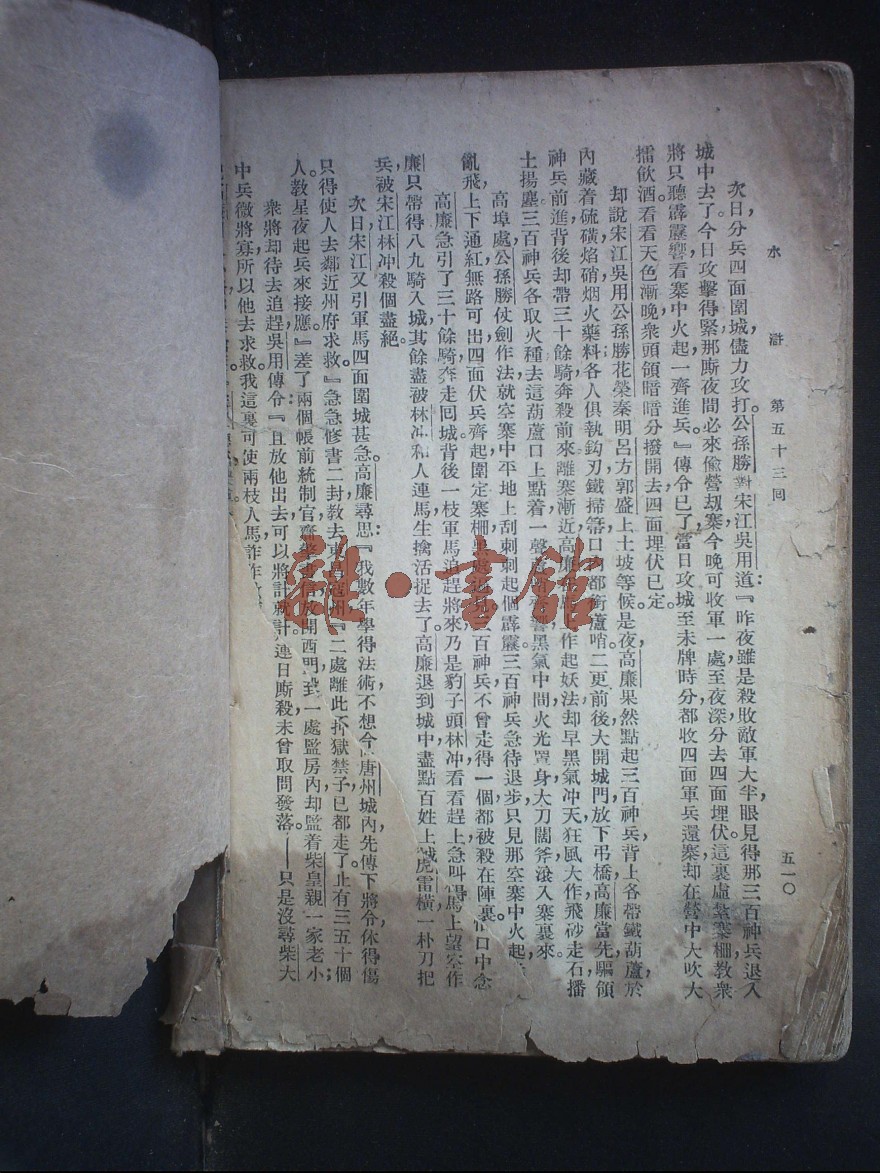 水滸 第五十三回 五一〇
次日，分兵四面圍城，儘力攻打。公孫勝對宋江吳用道：『昨夜雖是殺敗敵軍大半，眼見得那三百神兵退入
城中去了。今日攻擊得緊，那廝夜間必來偷營劫寨。今晚可收軍一處，至夜深分去四面埋伏。這裏虛紮寨柵，教衆
將只聽霹靂響，看寨中火起，一齊進兵。』傳令已了。當日攻城至未牌時分，都收四面軍兵還寨，却在營中大吹大
擂飲酒。看看天色漸晚，衆頭領暗暗分撥開去，四面埋伏已定。
却說宋江吳用公孫勝花榮秦明呂方郭盛上土坡等候。是夜，高廉果然點起三百神兵，背上各帶鐵葫蘆，於
內藏着硫磺焰硝，烟火藥料；各人俱執鈎刃鐵掃箒，口內都銜蘆哨。二更前後，大開城門，放下弔橋，高廉當先，驅領
神兵前進，背後却帶三十餘騎，奔殺前來。離寨漸近，高廉在馬上作起妖法，却早黑氣冲天，狂風大作，飛砂走石，播
土揚塵。三百神兵各取火種，去這葫蘆口上點着，一聲蘆哨齊響，黑氣中間，火光罩身，大刀闊斧，滾入寨裏來。
高埠處，公孫勝仗劍作法，就空寨中平地上刮剌剌起個霹靂。三百神兵急待退步，只見那空寨中火起，
亂飛，上下通紅，無路可出。四面伏兵齊起，圍定寨柵，黑處 三百神兵不曾走得一個，都被殺在陣裏。
高廉急引了三十餘騎，奔走回城。背後一枝軍馬追趕將來，乃是豹子頭林冲。看看趕上，急叫 馬上望空作
廉只帶得八九騎入城，其餘盡被林冲和人連馬生擒活捉去了。高廉退到城中，盡點百姓上城 虎雷橫一朴刀把
兵，被宋江林冲殺個盡絕。
次日，宋江又引軍馬四面圍城甚急。高廉尋思：『我數年學得法術，不想今 唐州城內，先傳下將令，休得傷
只得使人去鄰近州府求救。』急急修書二封，教去東昌寇州，『二處離此不 獄禁子已都走了，止有三五十個
人，教星夜起兵來接應。』差了兩個帳前統制官，齎擎書信，放開西門， 一處監房內，却監着柴皇親一家老小；
衆將却待去追趕，吳用傳令：『且放他出去，可以將計就計。 連日廝殺，未曾取問發落。——只是沒尋柴大
中兵微將寡，所以他去求救。我這裏可使兩枝人馬，詐作